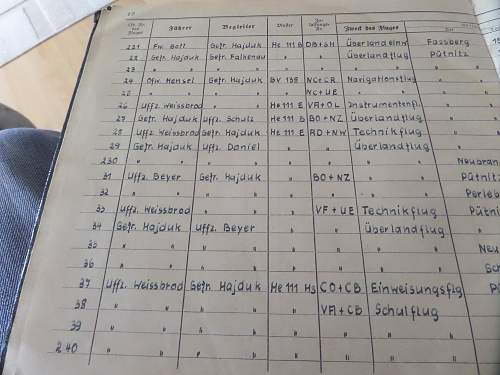 Lfd. Nr. des Fluges Führer Begleiter Muster Zulassungs-Nr. Zweck des Fluges
221 Fw. Boll Gefr. Hajduk He 111 B DB+SH Überlandeinw. Fassberg
22 Gefr. Hajduk Gefr. Falkenau " " Überlandflug Pütnitz
23 " " " " " " "
24 Ofw. Hensel Gefr. Hajduk BV 138 NC+CR Navigationsflug
25 " " " " " NC+UE "
26 Uffz. Weissbrod " " He 111 E VA+OL Instrumentenfl.
27 Gefr. Hajduk Uffz. Schulz He 111 B BO+NZ Überlandflug
28 Uffz. Weissbrod Gefr. Hajduk He 111 E AD+NW Technikflug
29 Gefr. Hajduk Uffz. Daniel " " Überlandflug
230 " " " " " " " Neubran
31 Uffz. Beyer Gefr. Hajduk " BO+NZ " Pütnitz
32 " " " " " " " Perleb
33 Uffz. Weissbrod " " " VF+UE Technikflug Pütni
34 Gefr. Hajduk Uffz. Beyer " " Überlandflug "
35 " " " " " " " Neu
36 " " " " " " " Sch
37 Uffz. Weissbrod Gefr. Hajduk He 111 H5 CO+CB Einweisungsflg. Pü
38 " " " " " VA+CB Schulflug
39 " " " " " " "
240 " " " " " " "